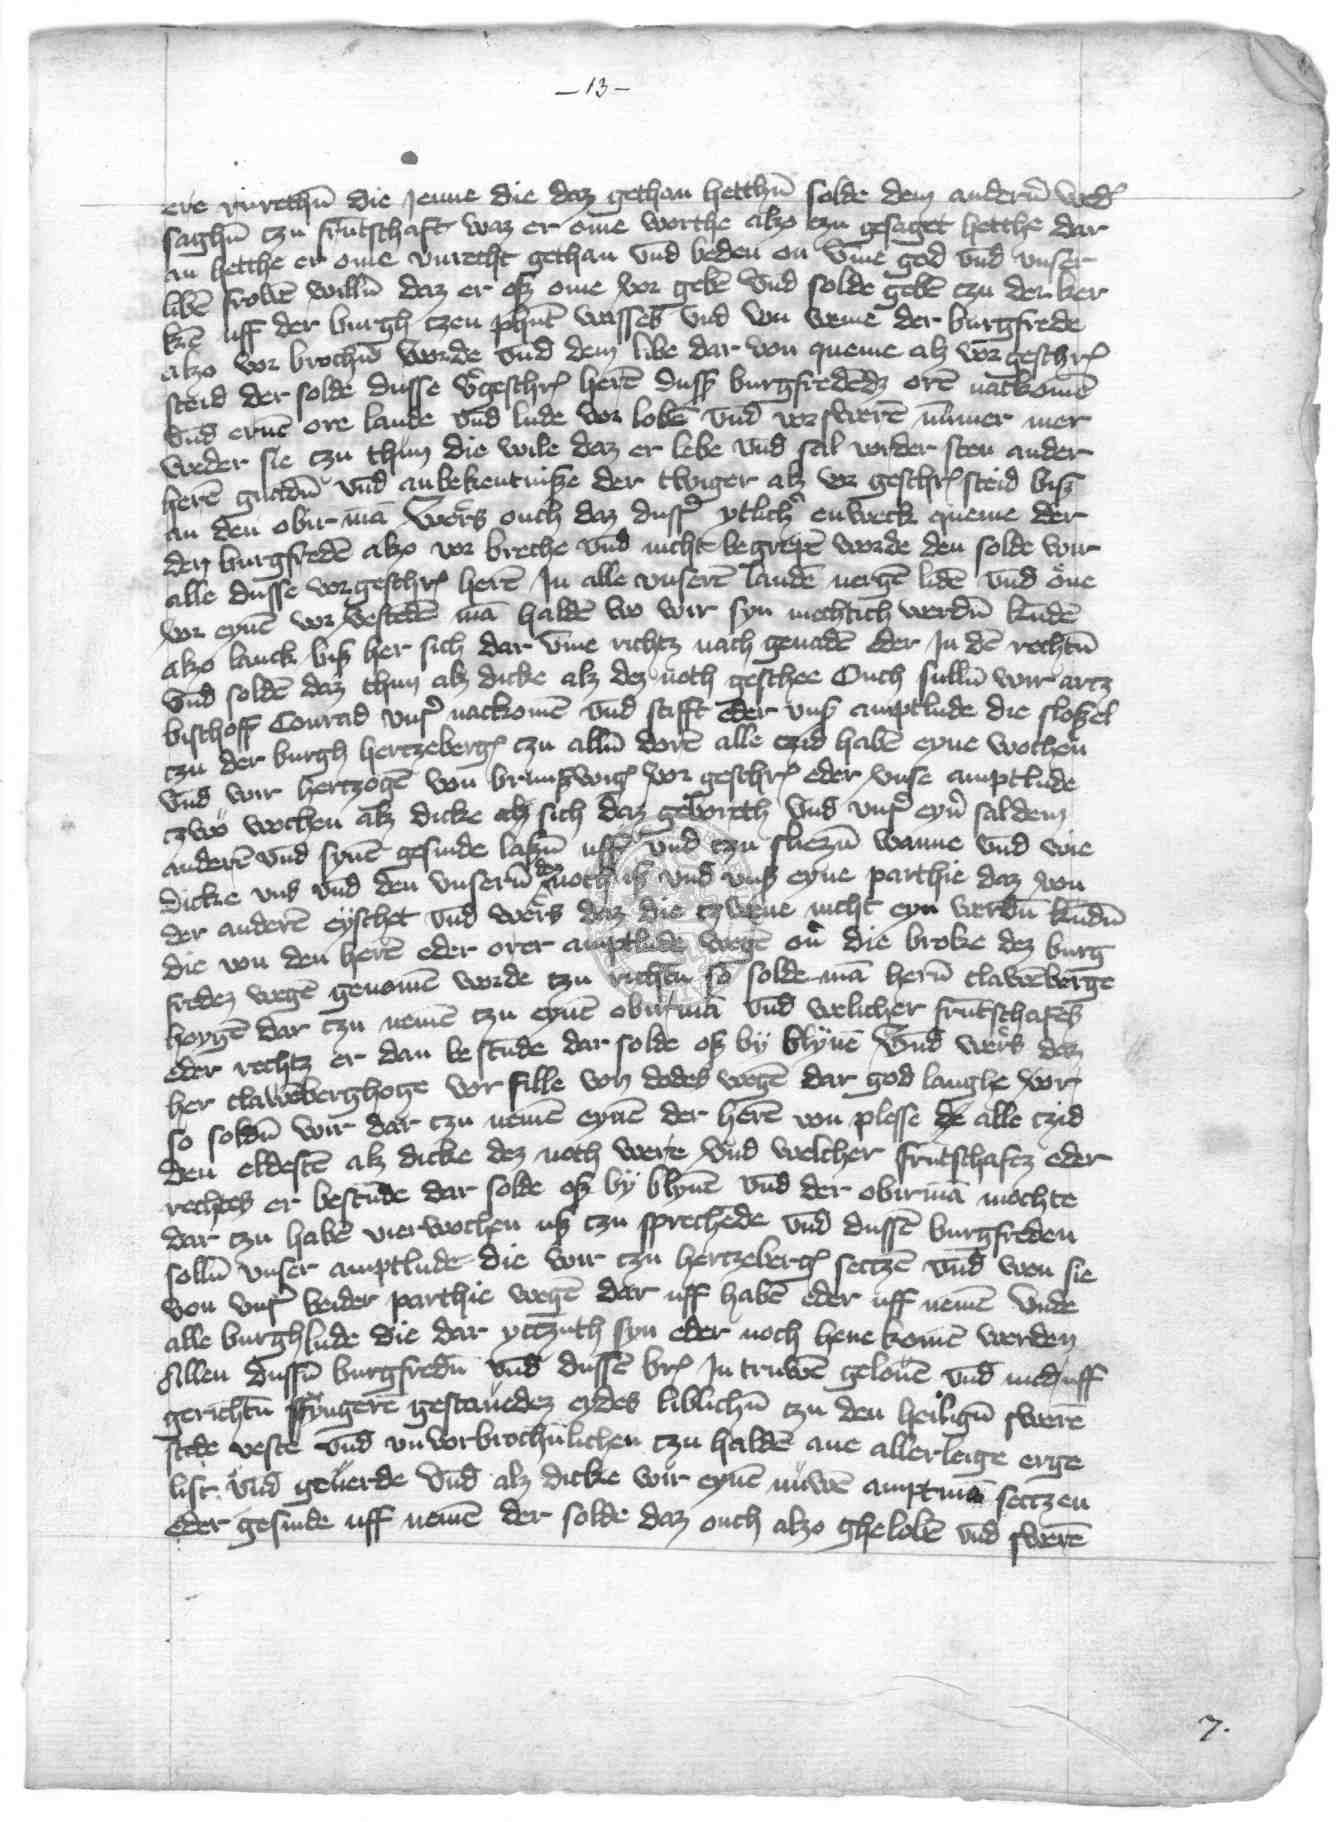 -13-
ere rurethūn die jenne die daz gethan hetthūn solde dem anderūn wed'
saghūn czu frūtschaft waz er ome worthe alzo czu gesaget hetthe dar
an hetthe er ome vnrecht gethan vnd beden on vm̄e god vnd vnser
libē frowē willū daz er oß ome vor gebē vnd solde gebē czu der ker
kē uff der burgh czen phūt wasses vnd von weme der burgfrede
alzo vor brochū worde vnd dem libe dar von queme alz vor geschr'
steid der solde dusse v'geschr' herē duss' burgfredēdz orē nackomē
vnd eruē ore lande vnd lude vor lobē vnd vorswerē nūmer mer
weder sie czu thun die wile daz er lebe vnd sal vorder sten ander
herē gnadū vnd an bekentniße der clwiger alz vor geschr' steid biß
an den obir mā Wörs ouch daz duss' ytlich' enweck queme der
den burgfredē alzo vor breche vnd nicht begrepē worde den solde wir
alle dusse vorgeschr' herē In alle unserē landē nergē lidē vnd öne
vor eynē vor vestedē mā haldē wo wir syn mechtich werdū kūdē
alzo lanck biß her sich dar vm̄e richtz nach genadē eder In dē rechtū
vnd soldē daz thun alz dicke alz dez noth geschee Ouch sullū wir artz
bischoff Conrad vns' nackomē vnd stifft eder vnß amptlude die sloßel
czu der burgh hertzeberg' czu allū dorē alle czid habē eyne wochen
vnd wir hertzogē von brunßwig' vor geschr' eder vnse amptlude
czwo wochen alz dicke alz sich daz geboreth vnd vns' eyn' sal dem
anderē vnd synē gesinde laßū uff' vnd czu sliezū wanne vnd wie
dicke vns vnd den vnserū dez noth is vnd vnß eyne parthie daz von
der anderē eyschet vnd wers daz die czwene nicht eyn werdū kūdū
die von den herē eder orer amptlude wegē ou' die broke dez burg
fredez wegē genomē worde czu richtū so solde mā herū clawēberge
hoygē dar czu nemē czu eynē obirmā vnd welicher frūtschafts
eder rechtz er dan bestūde dar solde oß by blyuē Vnd wers daz
her clawēberghoge vor fille von dodes wegē dar god langhe vor
so soldū wir dar czu nemē eynē der herē von plesse de alle czid
den eldestē alz dicke dez noth were vnd welcher frūtschaftz eder
rechtes er bestūde dar solde oß by blyuē vnd der obirmā mochte
dar czu habē vier wochen uß czu sprechēde vnd dussē burgfreden
sollū vnser amptlude die wir czu hertzeberg' seczē vnd wen sie
von vns' beider parthie wegē dar uff habē eder uff nemē vnde
alle burghlude die dar yctzūth syn eder noch hene komē werden
Allen dussū burgfredū vnd dussē br' In truwē gelouē vnd med uff
gerichtū vyngerē gestauedez eydes liblichū czu den heiligū swerē
stede veste vnd vnvorbrochūlichen czu haldē ane allerleige erge
list vnd geuerde vnd alz dicke wir eynē nuwē amptmā seczen
eder gesinde uff nemē der solde daz ouch alzo ghelobē vnd swerē
7.